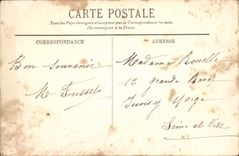 CARTE POSTALE
Tous les Pays étrangers n'acceptent pas la Correspondance au recto.
(Se renseigner à la Poste)
CORRESPONDANCE
ADRESSE
Bon souvenir
Madame
12 grande Rue
Juvisy s/ Orge
Seine et Oise